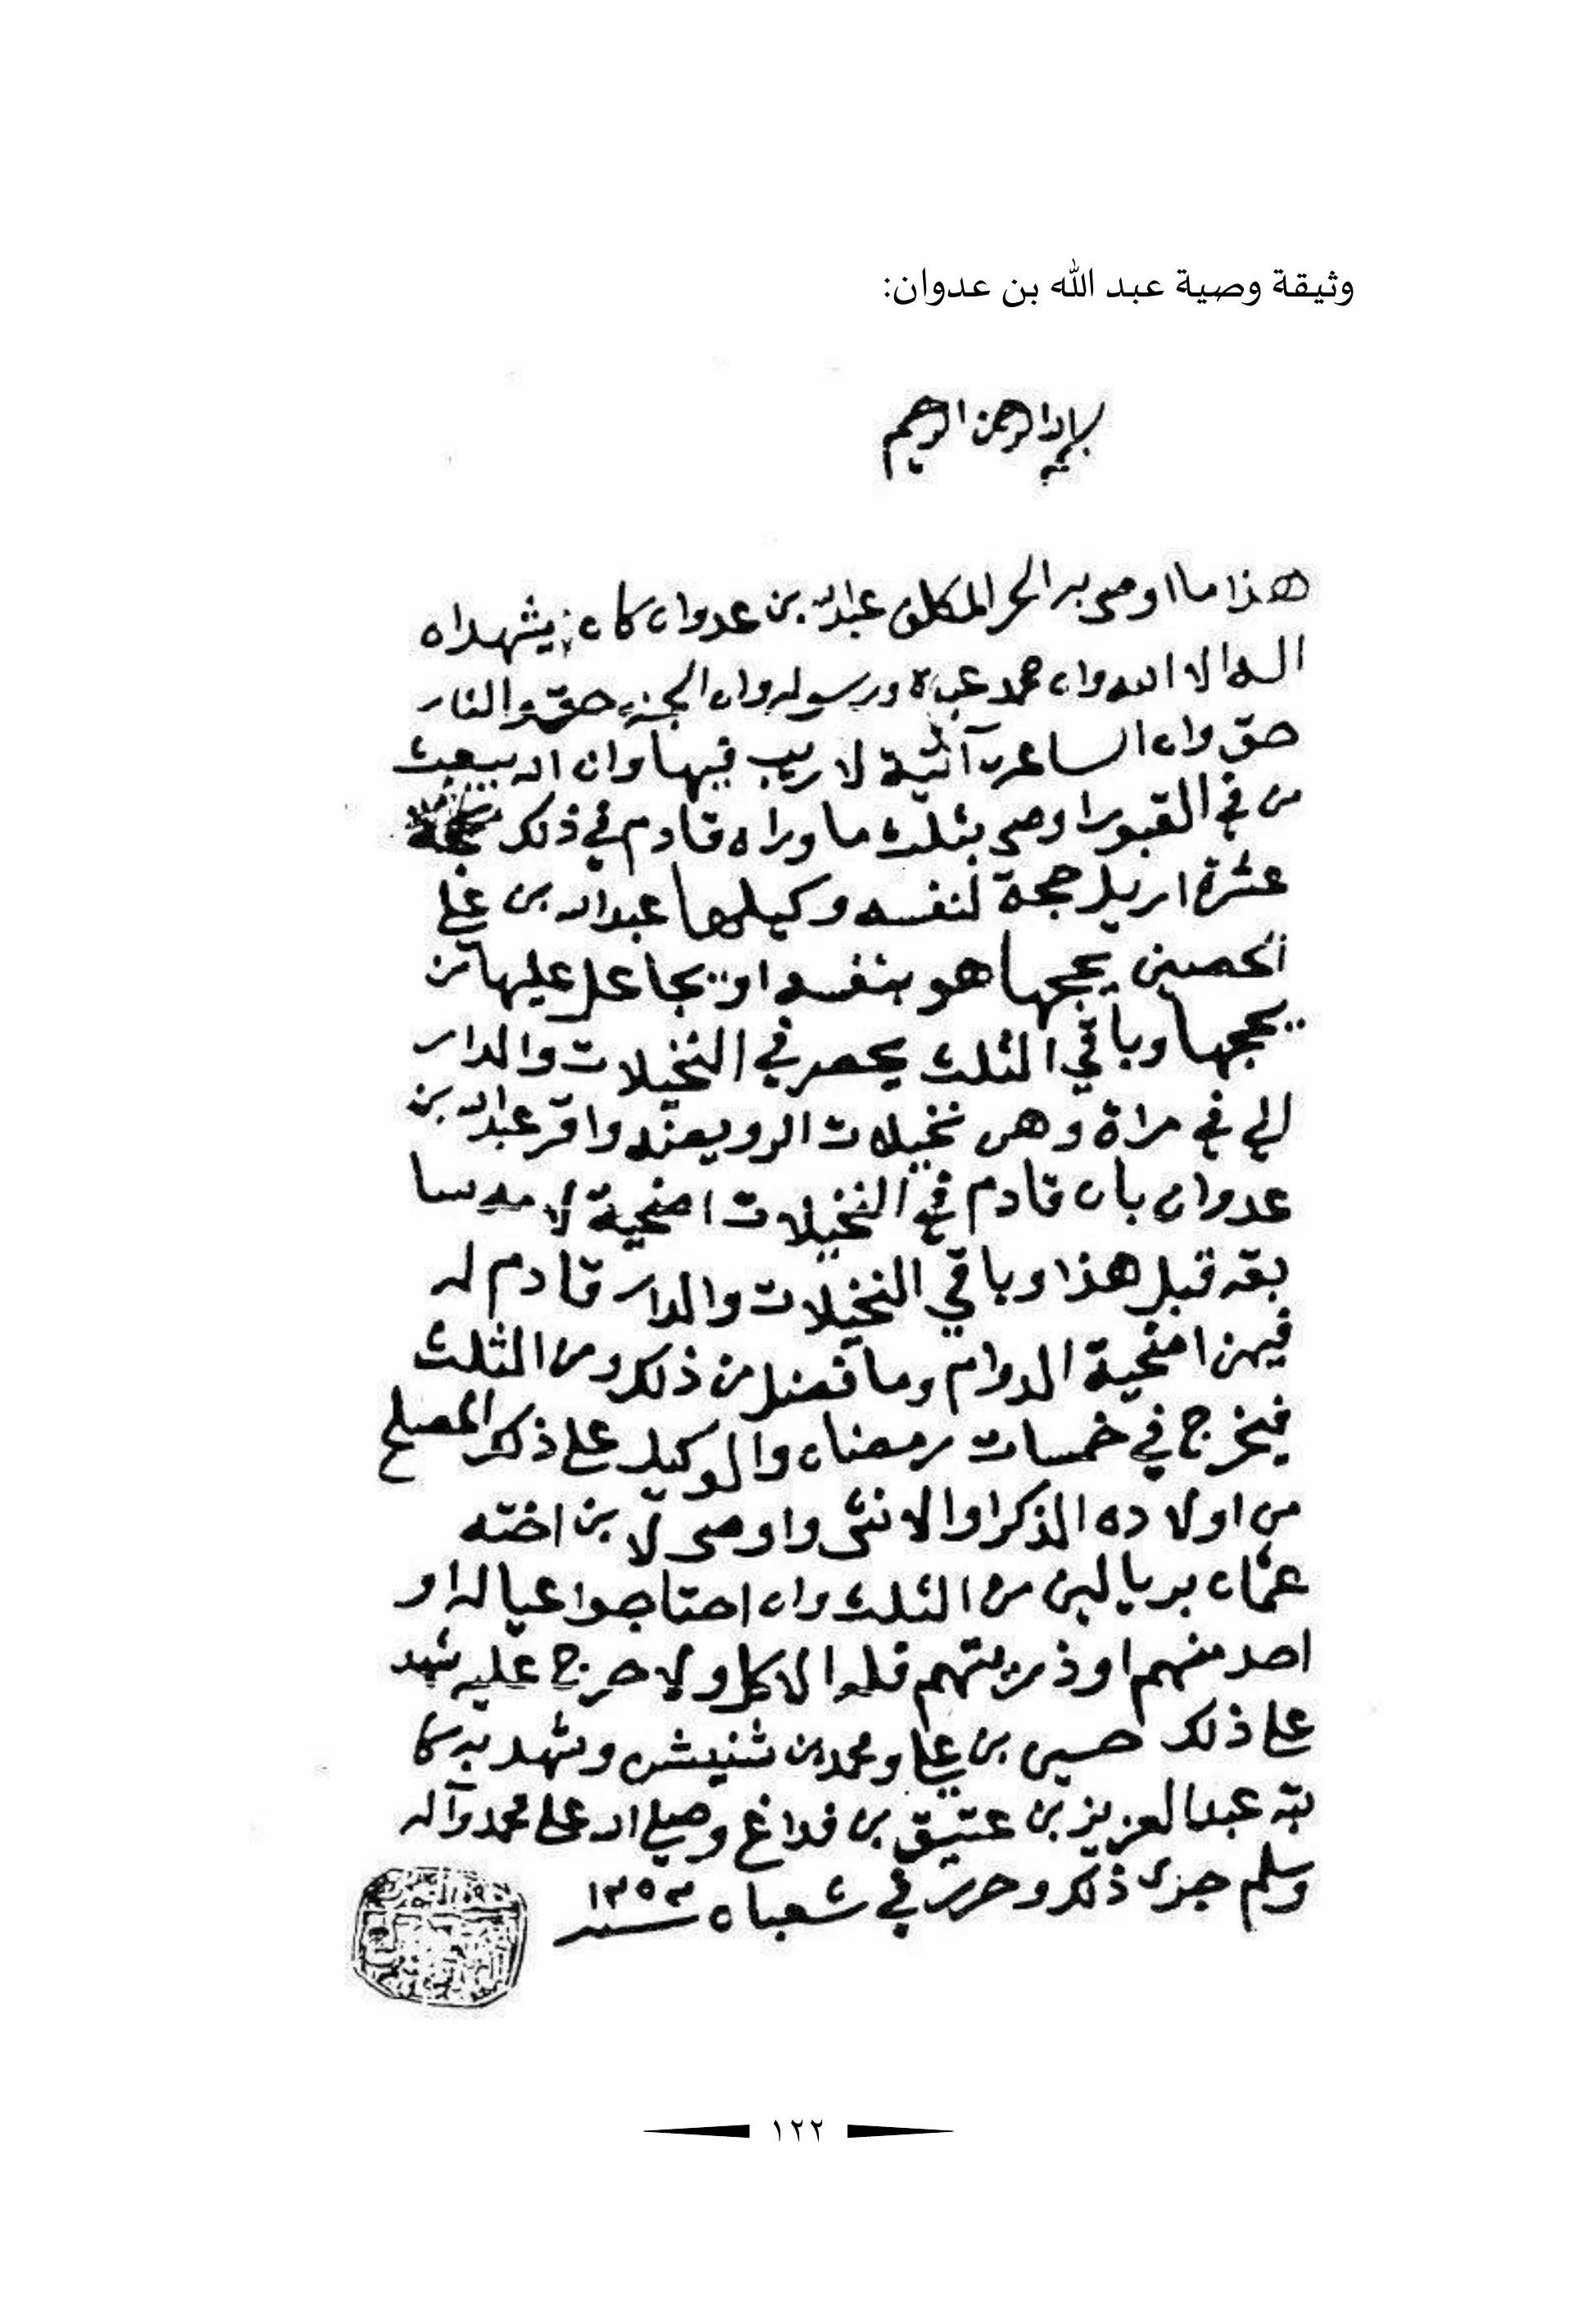 وثيقة وصية عبد الله بن عدوان:
بسم الله الرحمن الرحيم
هذا ما اوصى به الحر المكلف عبدالله بن عدوان كان يشهد ان
لا اله الا الله وان محمد عبده ورسوله وان الجنة حق والنار
حق وان الساعة آتية لا ريب فيها وان الله يبعث
من في القبور اوصى بثلث ما وراه قادم في ذلك
عشرة اريل حجة لنفسه وكيلها عبدالله بن علي
الحصيني يحجها هو بنفسه او يجاعل عليها من
يحجها وباقي الثلث يحصر في النخيلات والدار
الي في مراة وهن نخيلات الرويعنه واقر عبدالله بن
عدوان بان قادم في النخيلات اضحية لامه سا
بقه قبل هذا وباقي النخيلات والدار قادم له
فيهن اضحية الدوام وما فضل من ذلك ومن الثلث
فيخرج في خمسات رمضان والوكيل على ذلك المصلح
من اولاده الذكر او الانثى واوصى لابن اخته
عثمان بريالين من الثلث وان احتاجوا عياله او
احد منهم او ذريتهم فله الاكل ولا حرج عليه شهد
على ذلك حسين بن علي ومحمد بن شنيشن وشهد به كا
تبه عبدالعزيز بن عتيق بن فداغ وصلى الله على محمد وآله
وسلم جرى ذلك وحرر في شعبان سنة ١٣٥٣
١٢٢